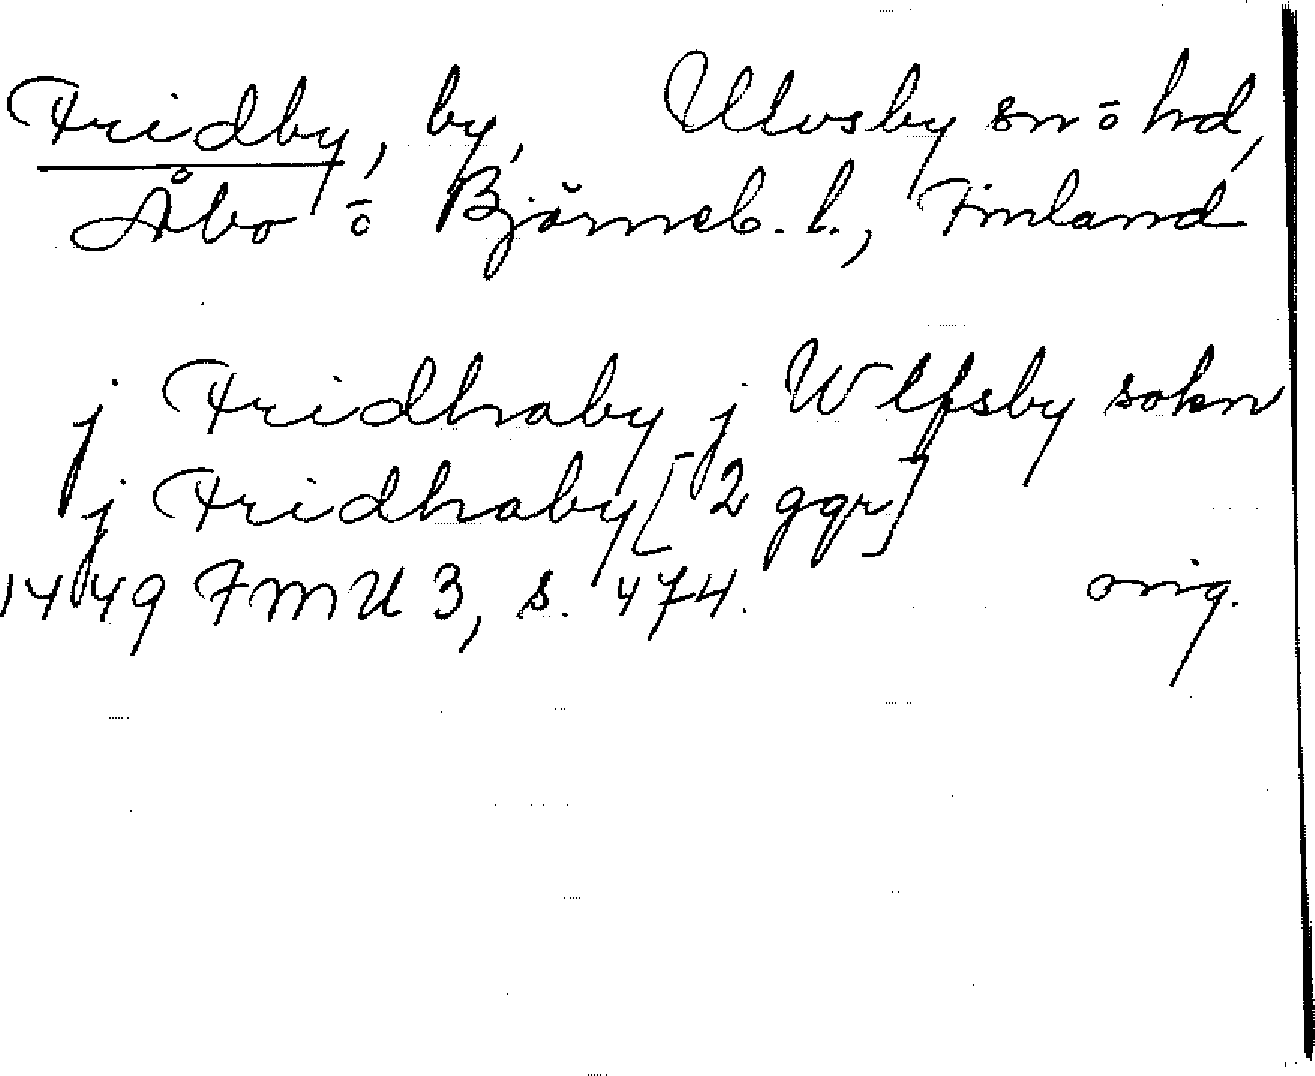 Fridby, by, Ulvsby sn ō hd,
Åbo ō Björneb. l., Finland
j Fridhaby j Wlfsby sokn
j Fridhaby [2 ggr]
1449 FMU 3, s. 474. orig.